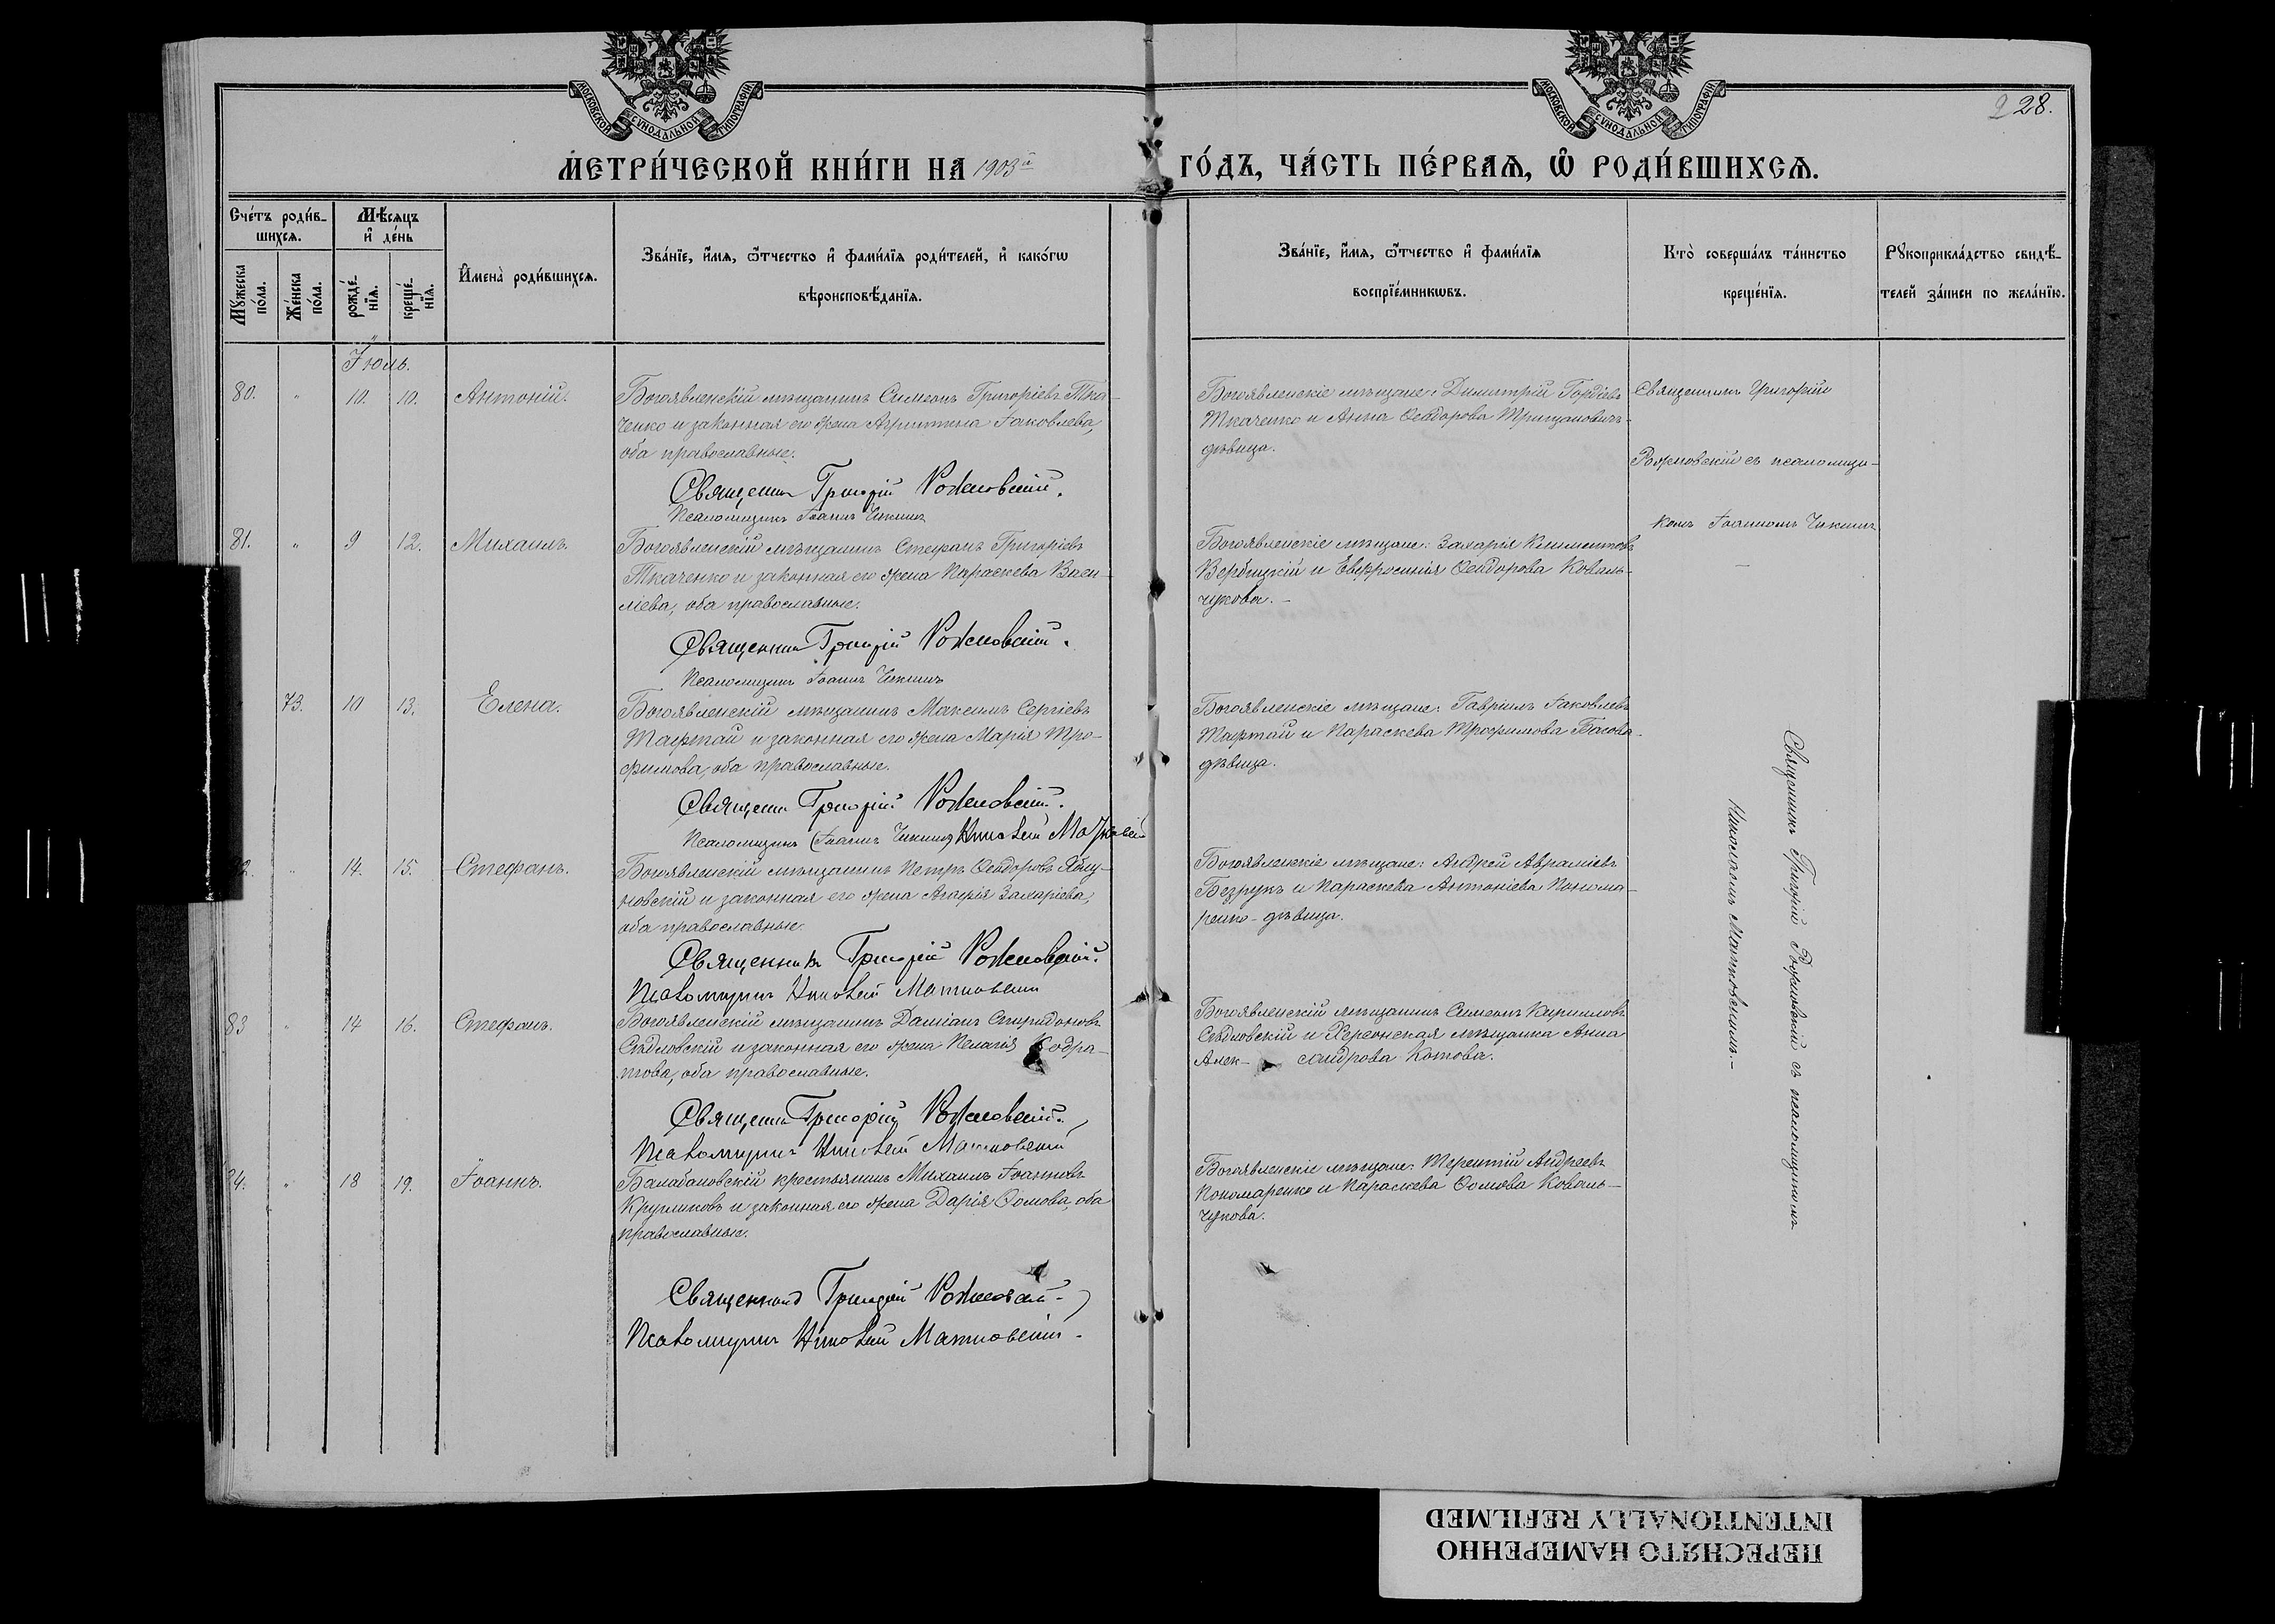 МОСКОВСКОЙ СѴНОДАЛЬНОЙ ТИПОГРАФІИ
МОСКОВСКОЙ СѴНОДАЛЬНОЙ ТИПОГРАФІИ
228.
МЕТРИ́ЧЕСКОЙ КНИ́ГИ НА 1903й ГО́ДЪ, ЧА́СТЬ ПЕ́РВАѦ, Ѡ҆ РОДИ́ВШИХСѦ.
Сче́тъ роди́в-
шихсѧ.
Мѣ́сѧцъ
и҆ де́нь
И҆мена̀ роди́вшихсѧ.
Зва́нїе, и҆́мѧ, ѻ҆́тчество и҆ фами́лїѧ роди́телей, и҆ како́гѡ
вѣроисповѣ́данїѧ.
Зва́нїе, и҆́мѧ, ѻ҆́тчество и҆ фами́лїѧ
воспрїе́мникѡвъ.
Кто̀ соверша́лъ та́инство
креще́нїѧ.
Рꙋкоприкла́дство свидѣ́-
телей за́писи по жела́нїю.
Мꙋ́жеска по́ла.
Же́нска по́ла.
рожде́-нїѧ.
креще́-нїѧ.
Іюль.
80. " 10. 10. Антоній.
Богоявленскій мѣщанинъ Симеонъ Григоріевъ Тка-
ченко и законная его жена Агриппина Іаковлева,
оба православные.
Священникъ Григорій Рожновскій.
Псаломщикъ Іоаннъ Чикинъ
Богоявленскіе мѣщане: Димитрій Гордіевъ
Ткаченко и Анна Ѳеодорова Трищановичъ-
дѣвица.
Священникъ Григорій
Рожновскій съ псаломщи-
комъ Іоанномъ Чикинъ
81. " 9 12. Михаилъ.
Богоявленскій мѣщанинъ Стефанъ Григоріевъ
Ткаченко и законная его жена Параскева Васи-
ліева, оба православные.
Священникъ Григорій Рожновскій.
Псаломщикъ Іоаннъ Чикинъ
Богоявленскіе мѣщане: Захарія Климентовъ
Вербицкій и Евфросинія Ѳеодорова Коваль-
чукова.-
73. 10 13. Елена.
Богоявленскій мѣщанинъ Максимъ Сергіевъ
Тафтай и законная его жена Марія Тро-
фимова, оба православные.
Священникъ Григорій Рожновскій.
Псаломщикъ Іоаннъ Чикинъ
Богоявленскіе мѣщане: Гавріилъ Іаковлевъ
Тафтай и Параскева Трофимова Басова-
дѣвица.
2. " 14. 15. Стефанъ.
Богоявленскій мѣщанинъ Петръ Ѳеодоровъ
новскій и законная его жена Агафія Захаріева,
оба православные.
Священникъ Григорій Рожновскій.
Псаломщикъ Николай Матковскій
Богоявленскіе мѣщане: Андрей Авраміевъ
Безрукъ и Параскева Антоніева Понома-
ренко-дѣвица.
83 " 14 16. Стефанъ.
Богоявленскій мѣщанинъ Даміанъ Спиридоновъ
Сѣдловскій и законная его жена Пелагія Кодра-
това, оба православные.
Священникъ Григорій Рожновскій.
Псаломщикъ Николай Матковскій
Богоявленскій мѣщанинъ Симеонъ Кирилловъ
Сѣдловскій и Херсонская мѣщанка Анна
Алек- сандрова Котова.
Священникъ Григорій Рожновскій съ псаломщикомъ
Николаемъ Матковскимъ.-
4. " 18 19. Іоаннъ.
Балабановскій крестьянинъ Михаилъ Іоанновъ
Кругликовъ и законная его жена Дарія Ѳомова, оба
православные.
Священникъ Григорій Рожновскій.
Псаломщикъ Николай Матковскій.
Богоявленскіе мѣщане: Терентій Андреевъ
Пономаренко и Параскева Ѳомова Коваль-
чукова.
ПЕРЕСНЯТО НАМЕРЕННО
INTENTIONALLY REFILMED